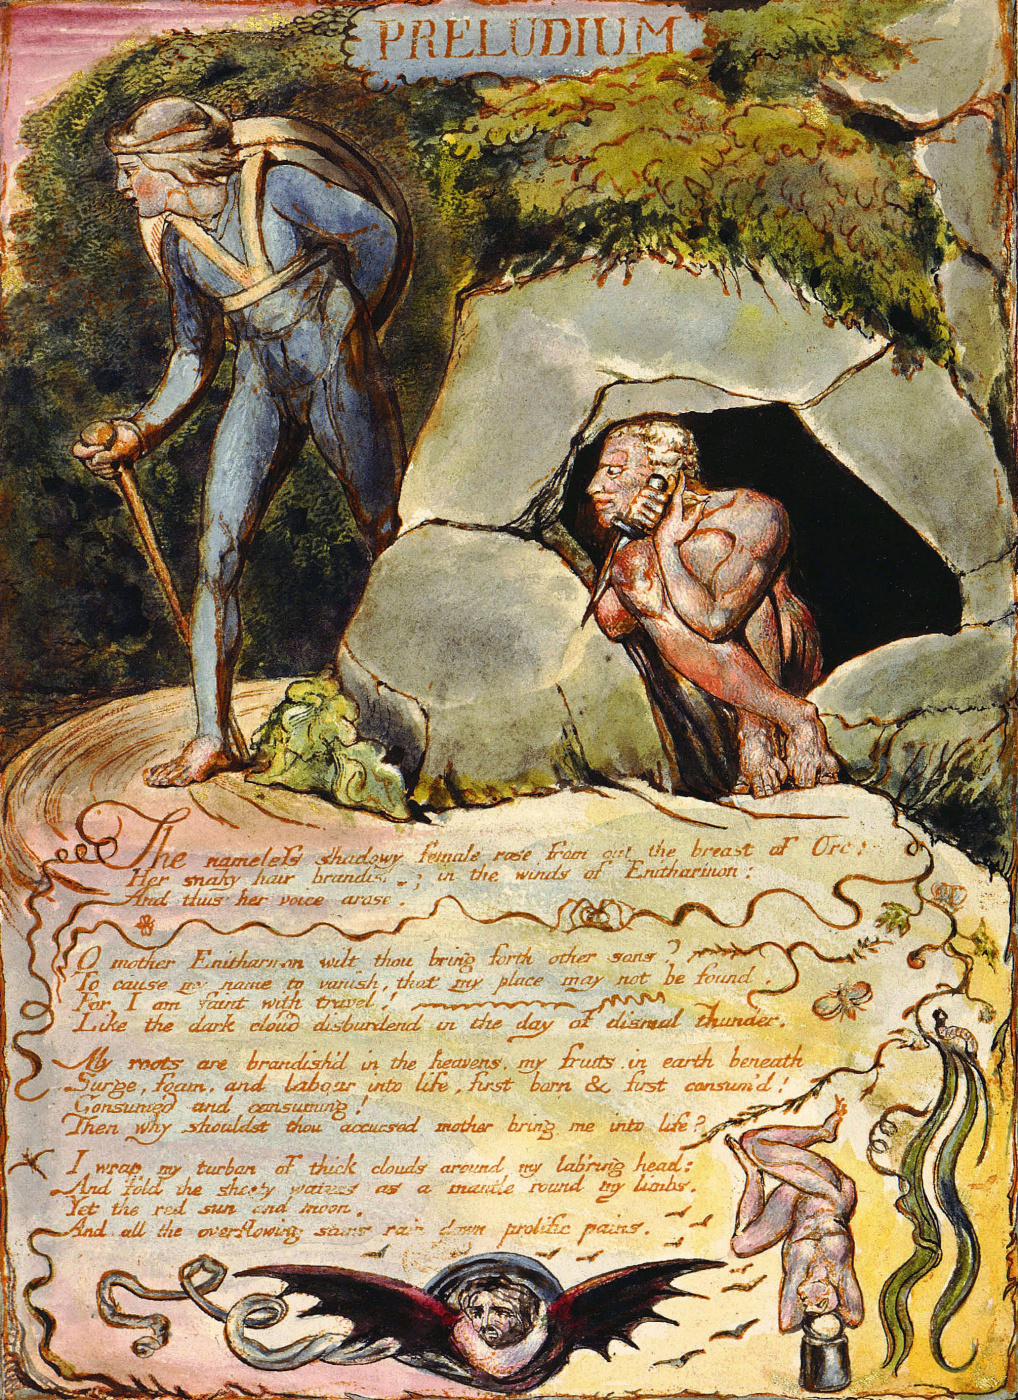 PRELUDIUM
The nameless shadowy female rose from out the breast of Orc:
Her snaky hair in the winds of Enitharmon:
And thus her voice arose.
O mother Enitharmon wilt thou bring forth other sons?
To cause my name to vanish, that my place may not be found.
For I am faint with travel!
Like the dark cloud disburdend in the day of dismal thunder.
My roots are brandish'd in the heavens, my fruits in earth beneath
Surge, foam, and labour into life, first born & first consum'd!
Consumed and consuming!
Then why shouldst thou accursed mother bring me into life?
I wrap my turban of thick clouds around my lab'ring head:
And fold the sheety waters as a mantle round my limbs.
Yet the red sun and moon,
And all the overflowing stars rain down prolific pains.